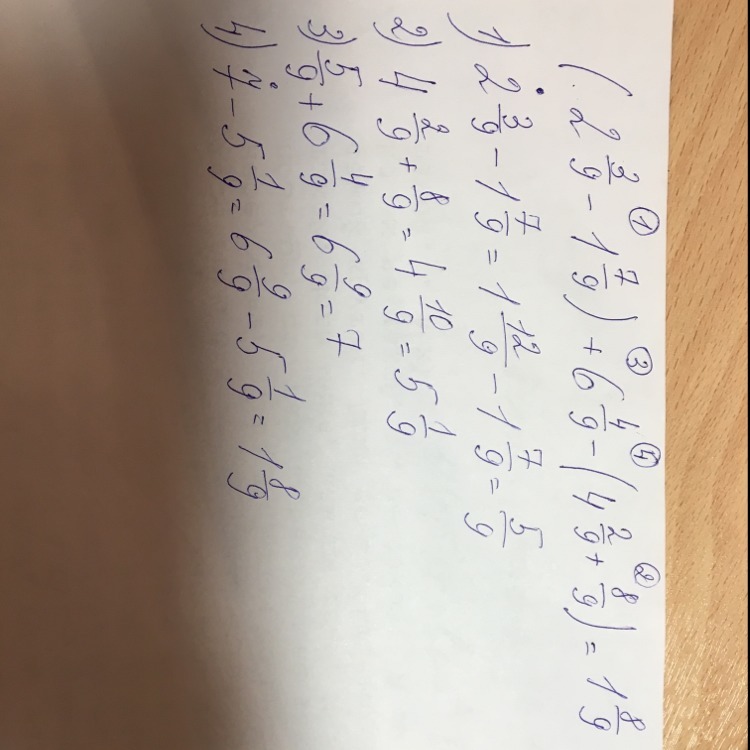 (2 3/9 - 1 7/9) + 6 4/9 - (4 2/9 + 8/9) = 1 8/9
① ③ ④ ②
1) 2 3/9 - 1 7/9 = 1 12/9 - 1 7/9 = 5/9
2) 4 2/9 + 8/9 = 4 10/9 = 5 1/9
3) 5/9 + 6 4/9 = 6 9/9 = 7
4) 7 - 5 1/9 = 6 9/9 - 5 1/9 = 1 8/9